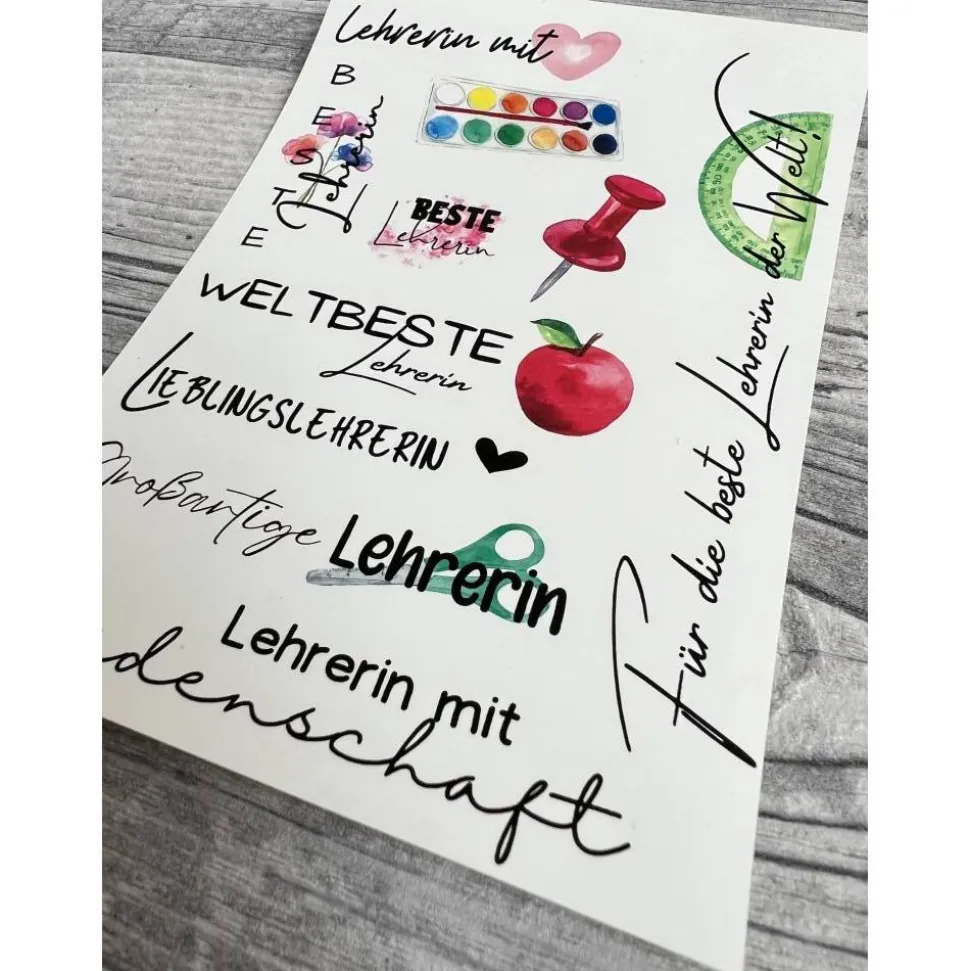 Lehrerin mit
BESTE
Lehrerin
BESTE
Lehrerin
WELTBESTE
Lehrerin
LIEBLINGSLEHRERIN
Großartige
Lehrerin
Lehrerin mit
denschaft
Für die beste Lehrerin der Welt!